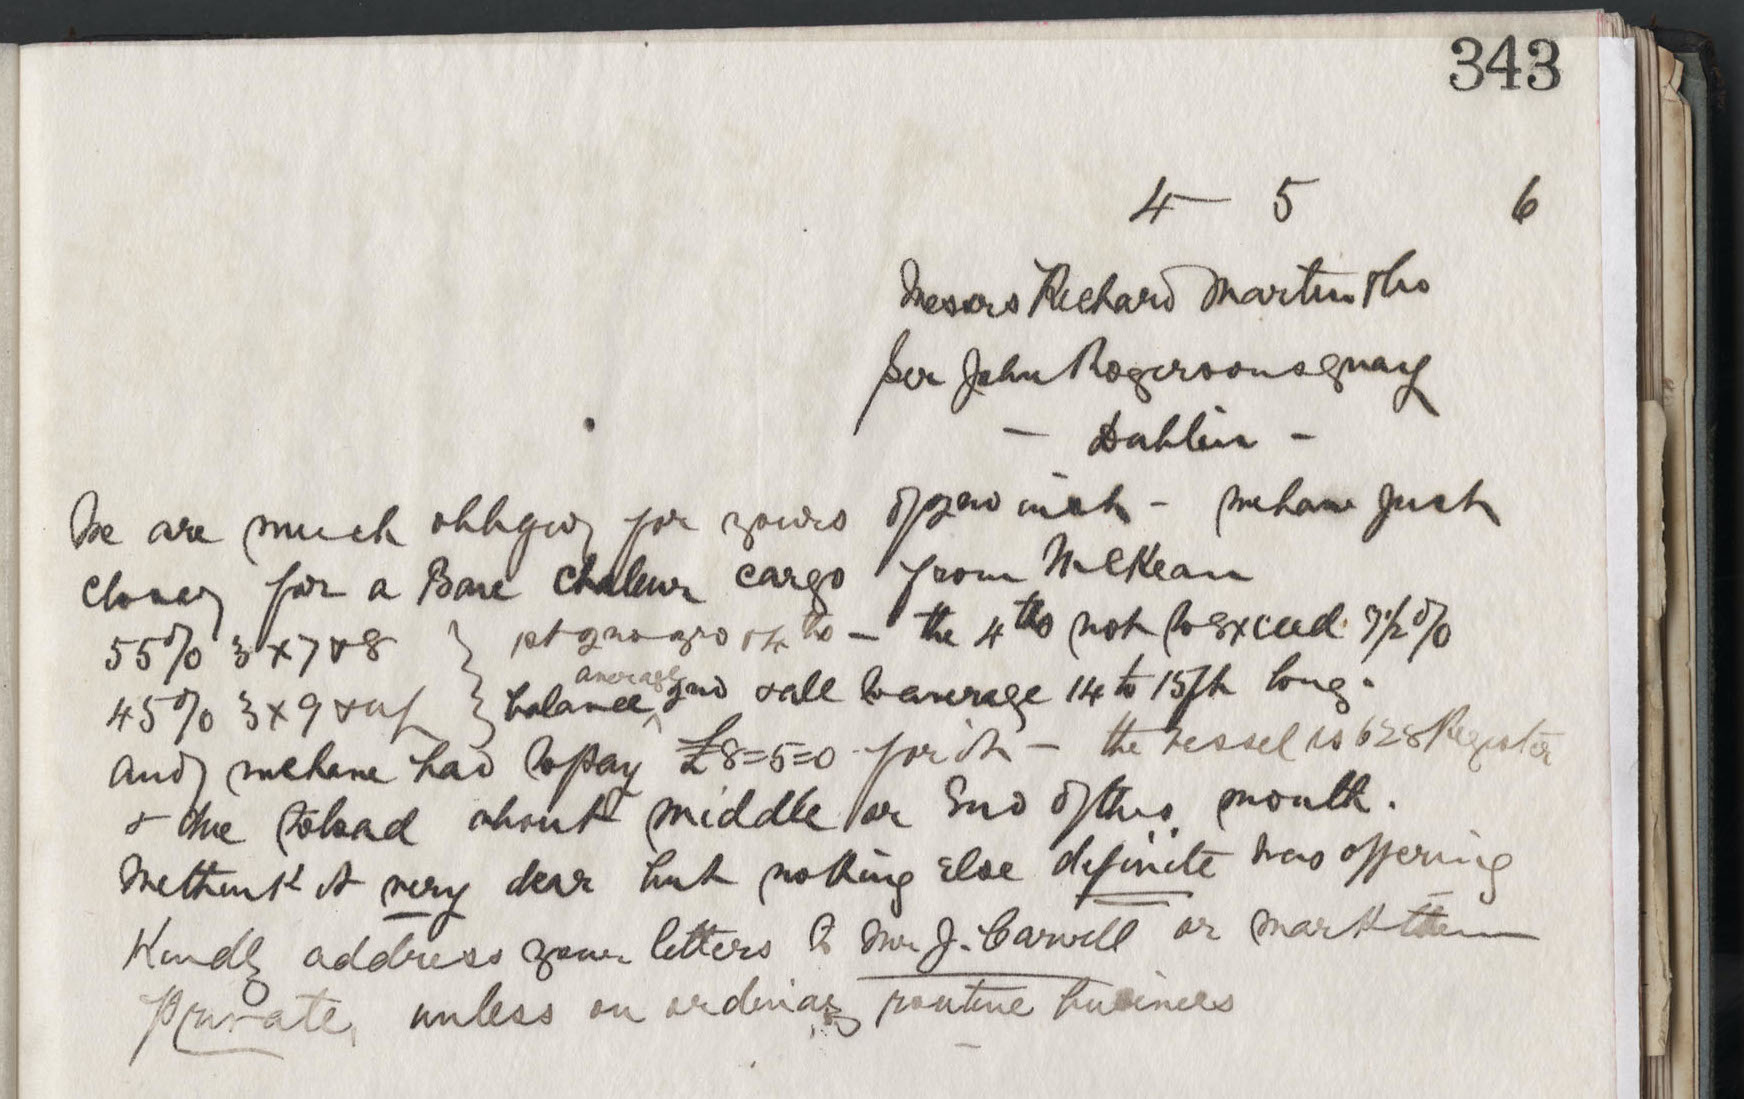 343
4 – 5 6
Messrs Richard Martin & Co
Sir John Rogersons quay
– Dublin –
We are much obliged for yours of 2nd inst – we have just
closed for a Baie Chaleur cargo from McKean
55% 3 x 7 & 8 } 1st 2nd 3rd & 4ths – the 4ths not to exceed 7½%
45% 3 x 9 & up } balance average 2nd & all to average 14 to 15ft long.
and we have had to pay £8=5=0 for it – the vessel is 628 Register
& due to load about middle or End of this month.
We think it very dear but nothing Else definite was offering
Kindly address your letters to Mr J. Carvill or mark them
Private, unless on ordinary routine business